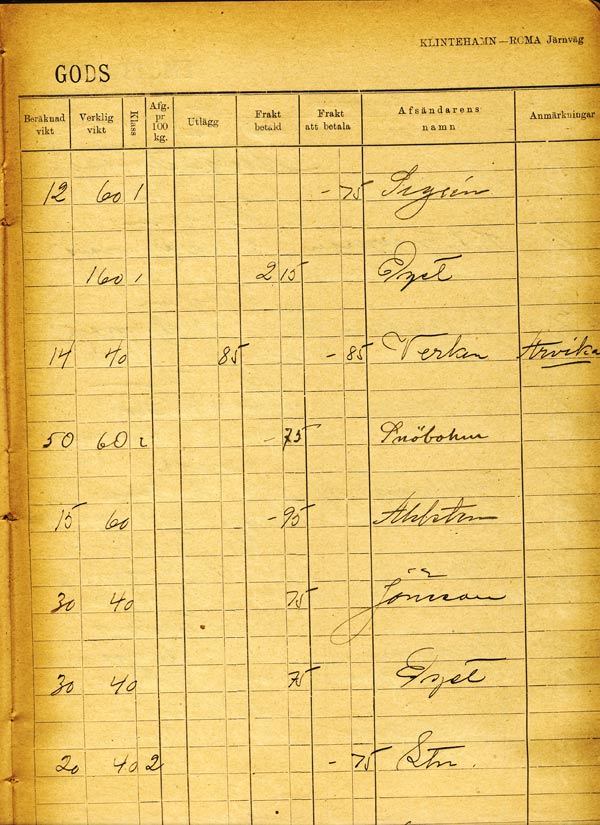 KLINTEHAMN—ROMA Järnväg
GODS
Beräknad vikt Verklig vikt Klass Afg. pr 100 kg. Utlägg Frakt betald Frakt att betala Afsändarens namn Anmärkningar
12 60 1 -75
160 1 2 15
14 40 85 -85 Verken Arvika
50 60 -75 Snöbohm
15 60 -95
30 40 75 Jönsson
30 40 75
20 40 2 -75 Stn